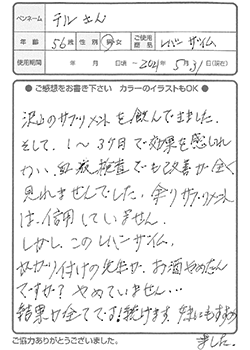 ペンネーム テルさん
年齢 56歳 性別 男・女 ご使用商品 レバンザイム
使用期間 年 月 日頃 ～2021年5月31日(現在)
●ご感想をお書き下さい カラーのイラストもOK●
沢山のサプリメントを飲んできました。
そして、1～3ケ月で効果を感じれ
ない、血液検査でも改善が全く
見れませんでした。余りサプリメント
は、信用していません。
しかし、このレバンザイム、
かかり付けの先生が、お酒やめたん
ですか? やめていません…
結果が全てです!続けます。妹にもすすめ
ました。
ご協力ありがとうございました。